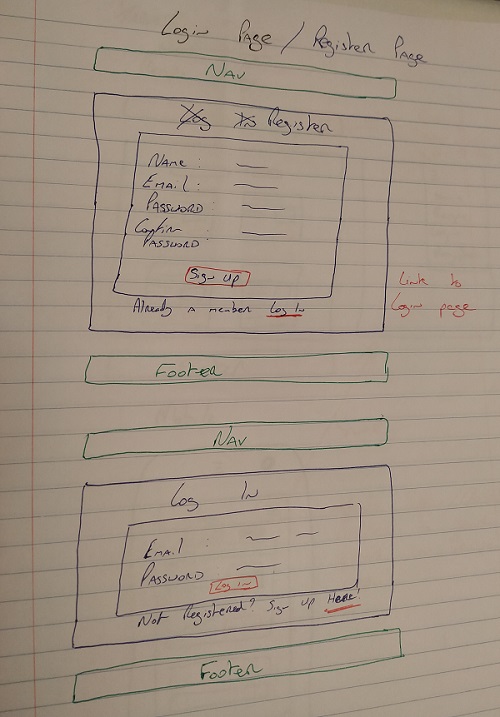 Login Page / Register Page
Nav
Log In Register
Name :
Email :
Password :
Confirm
Password :
Sign Up
Already a member Log In
Link to
Login page
Footer
Nav
Log In
Email :
Password
Log in
Not Registered? Sign up Here!
Footer